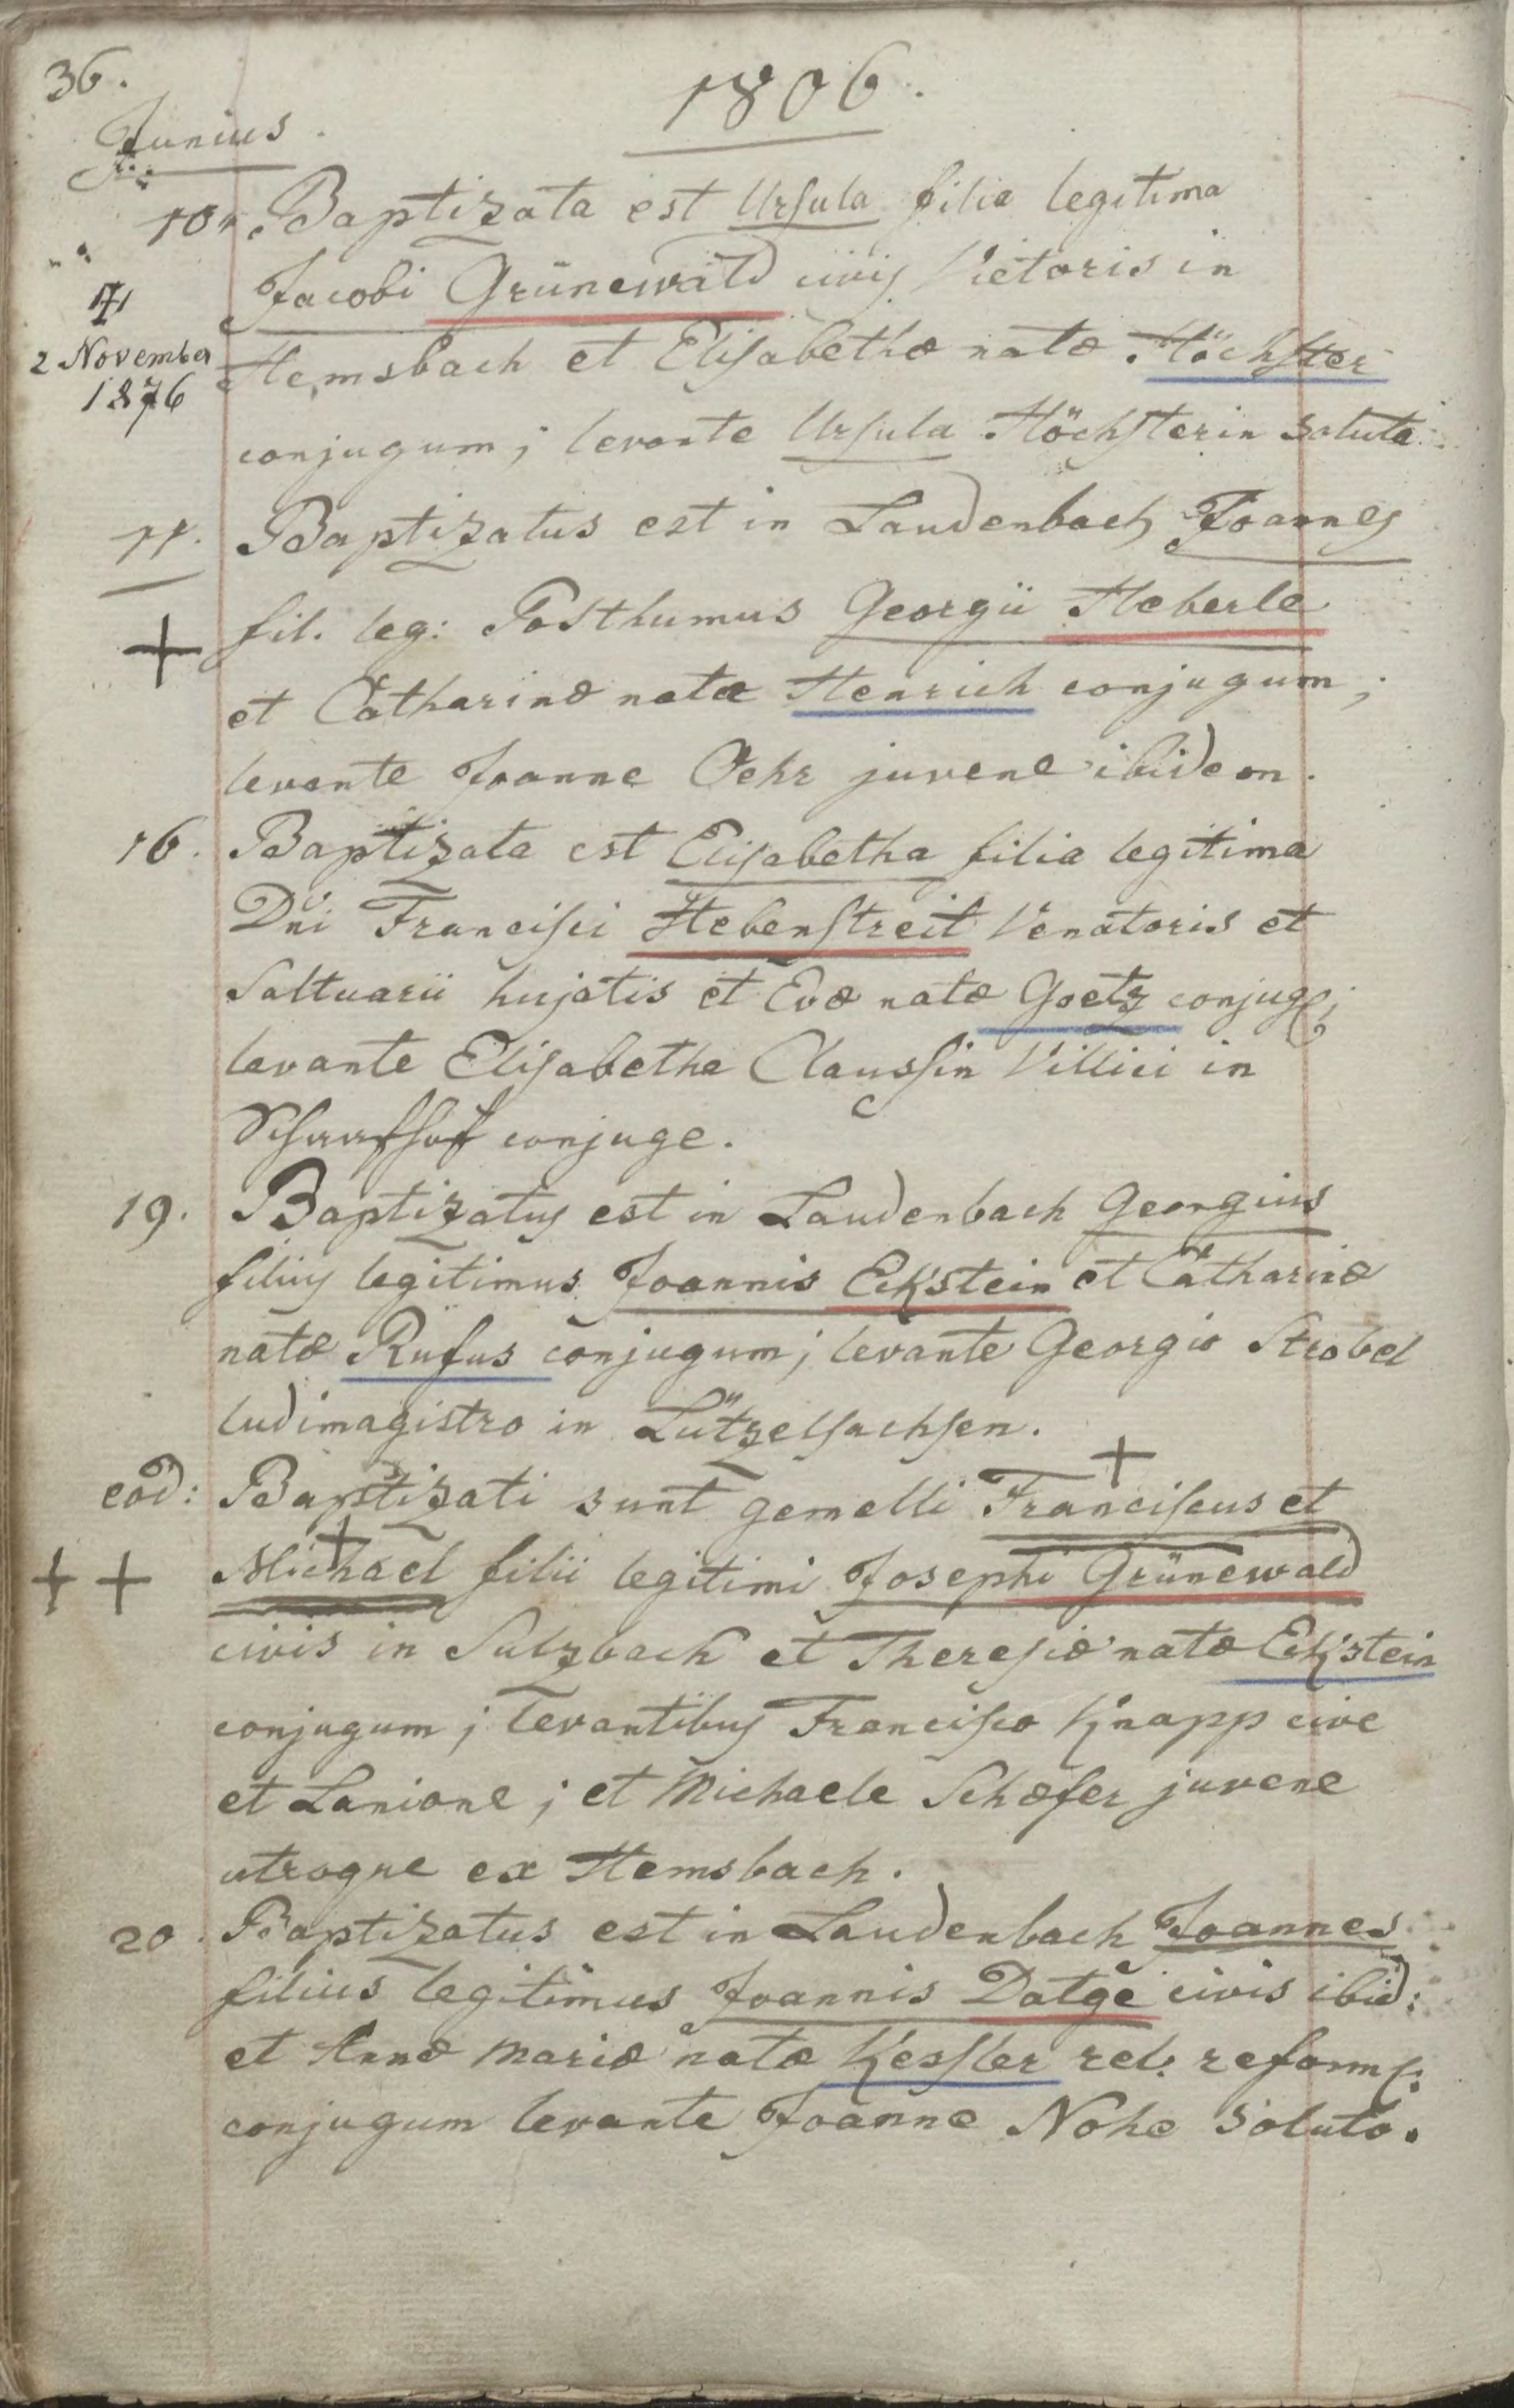 36.
1806.
Junius.
10. Baptizata est Ursula filia legitima
Jacobi Grünewald civis Victoris in
†
2 November
1876
Hemsbach et Elisabethæ natæ Höchster
conjugum; levante Ursula Höchsterin soluta.
11. Baptizatus est in Laudenbach Joannes
+
fil. leg: Posthumus Georgii Heberle
et Catharinæ natæ Henrich conjugum;
levante Joanne Oehr juvene ibidem.
16. Baptizata est Elisabetha filia legitima
Dni Francisci Hebenstreit Venatoris et
Saltuarii hujatis et Evæ natæ Goetz conjug:;
levante Elisabetha Claussin Villici in
Schaafhof conjuge.
19. Baptizatus est in Laudenbach Georgius
filius legitimus Joannis Eckstein et Catharinæ
natæ Rufus conjugum; levante Georgio Strobel
ludimagistro in Lützelsachsen.
+
eod: Baptizati sunt gemelli Franciscus et
+
++ Michael filii legitimi Josephi Grünewald
civis in Sulzbach et Theresiæ natæ Eckstein
conjugum; levantibus Francisco Knapp cive
et Lanione; et Michaele Schæfer juvene
utroque ex Hemsbach.
20. Baptizatus est in Laudenbach Joannes
filius legitimus Joannis Datge civis ibid:
et Annæ Mariæ natæ Kessler rel: reform:
conjugum levante Joanne Nohe soluto.